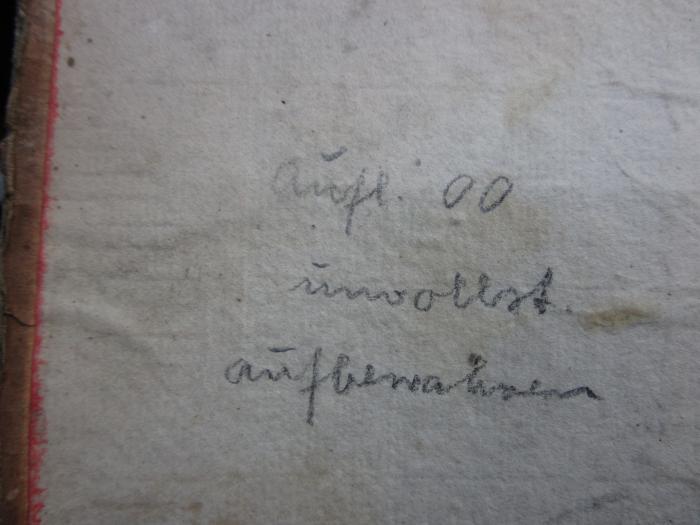 Aufl. 00
unvollst.
aufbewahren